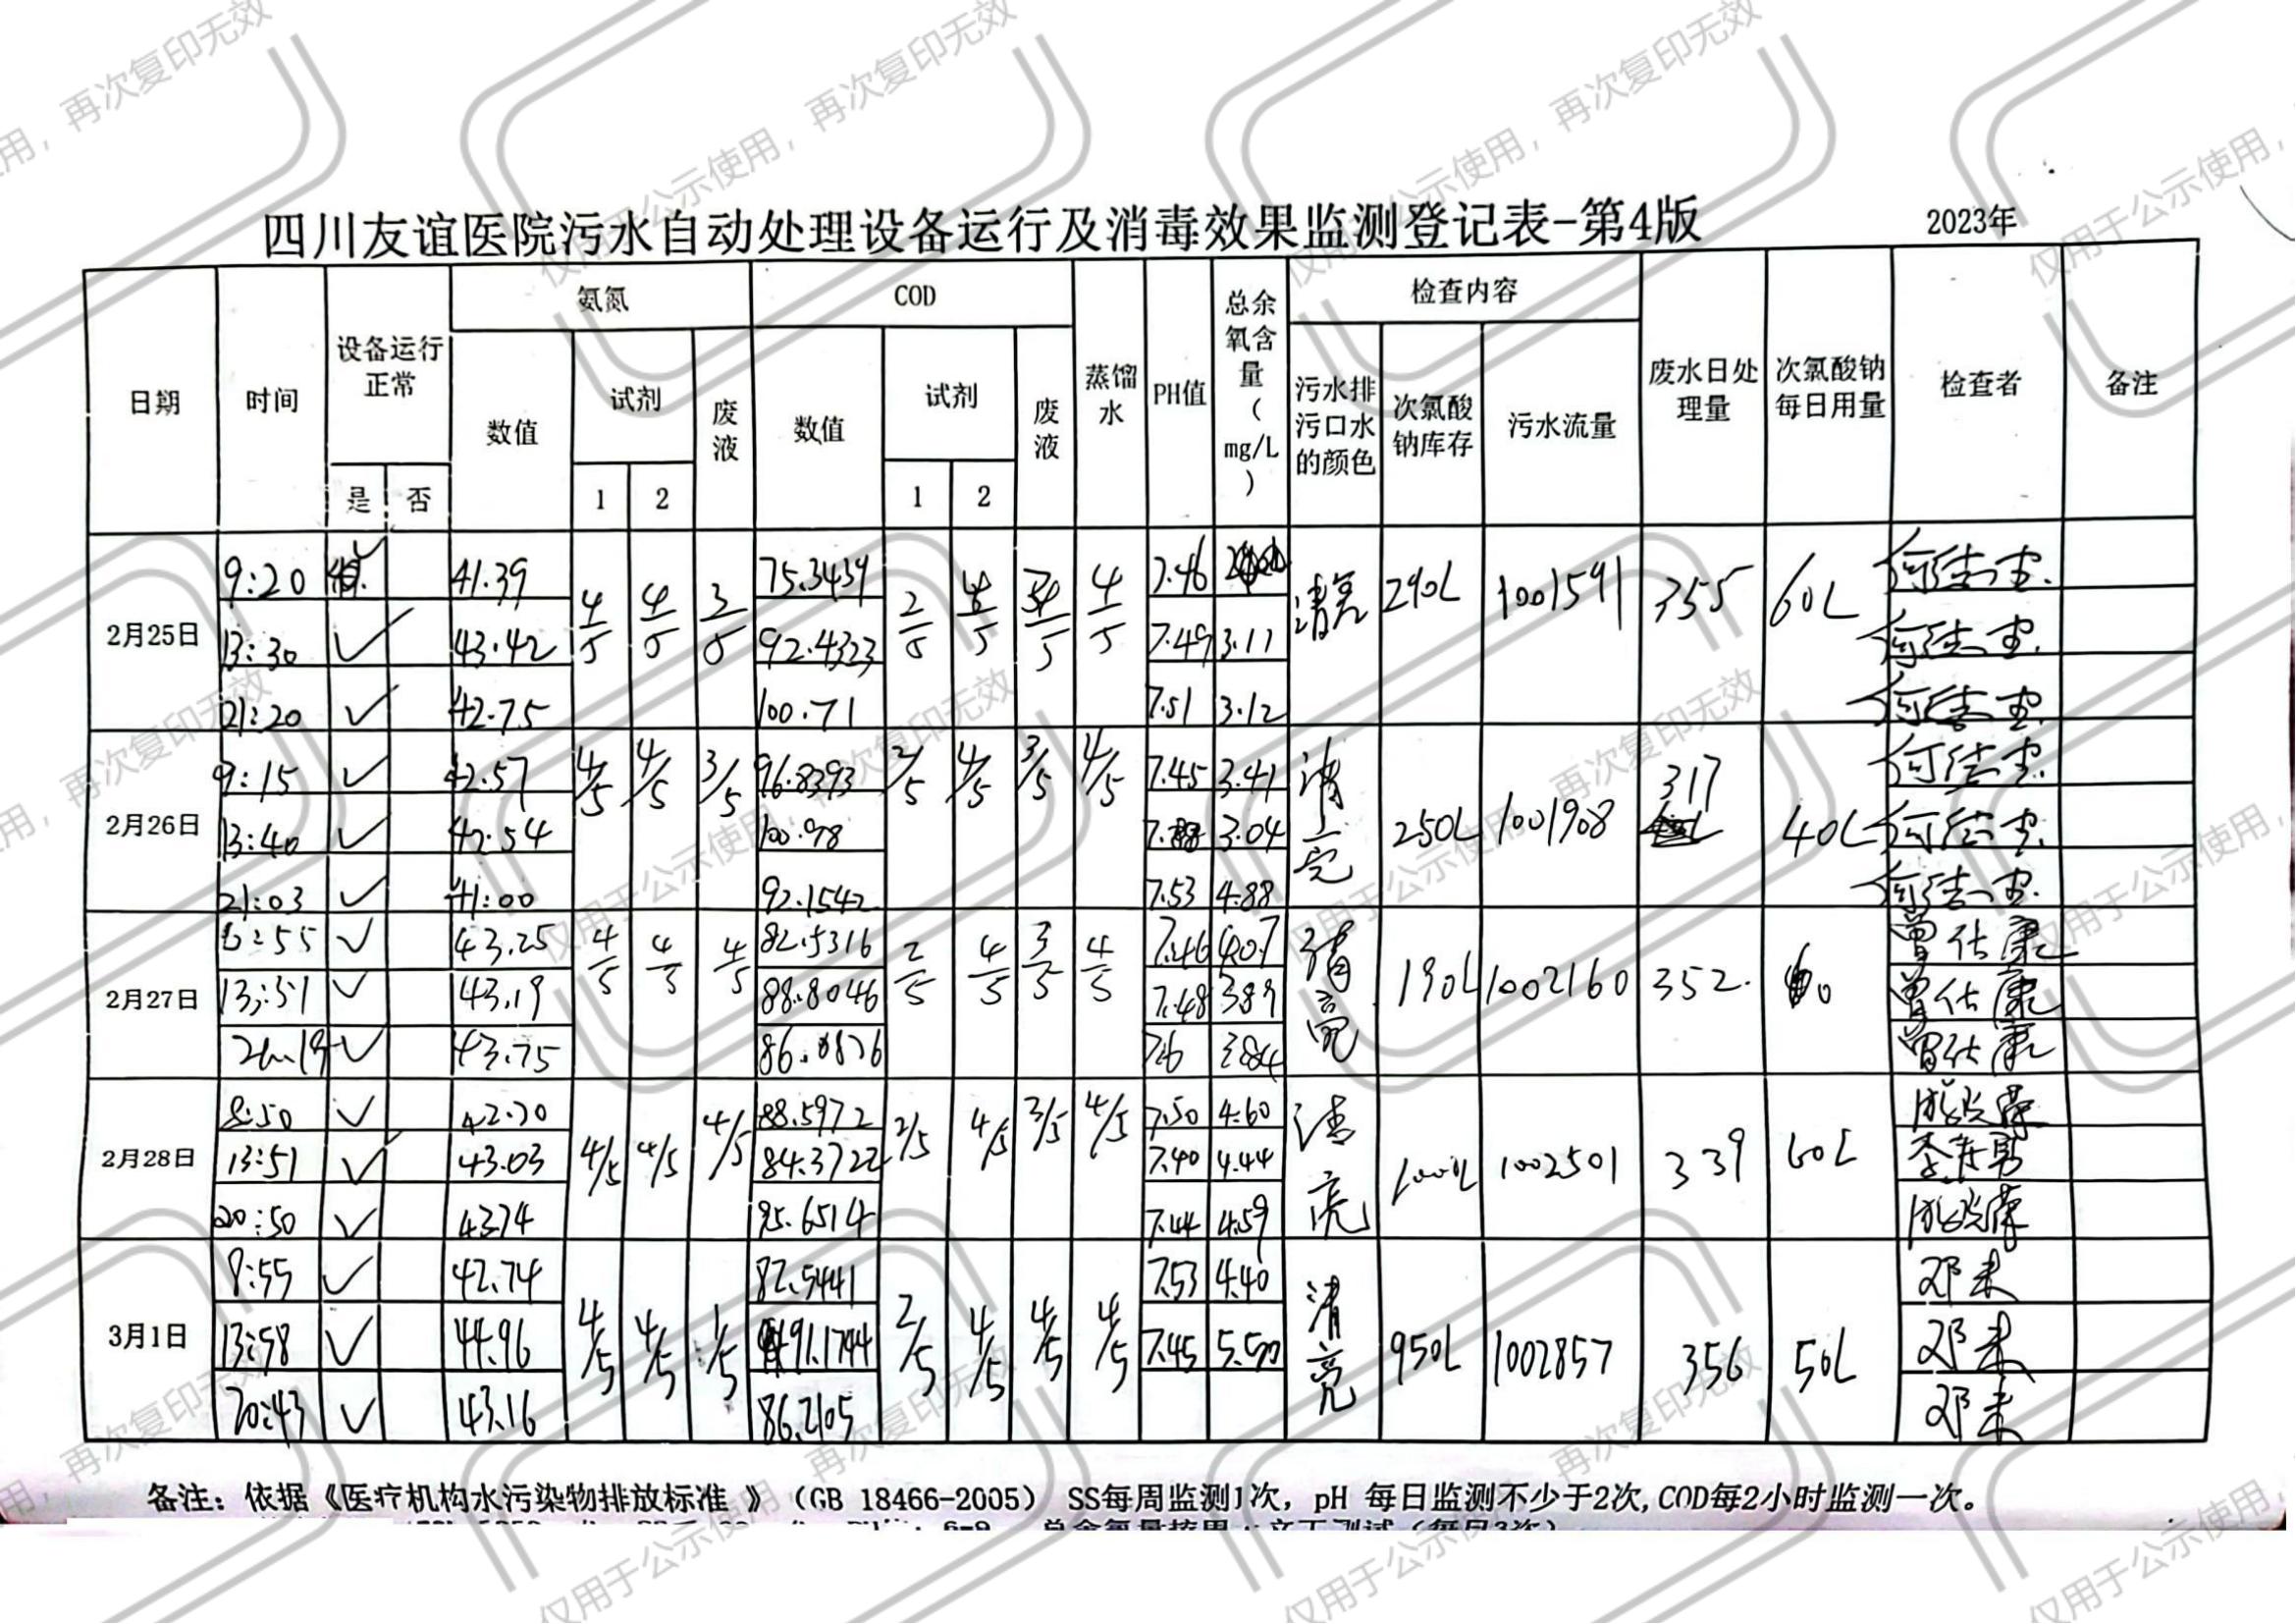 四川友谊医院污水自动处理设备运行及消毒效果监测登记表-第4版 2023年
日期 时间 设备运行正常 是 否 氨氮 数值 试剂 1 2 废液 COD 数值 试剂 1 2 废液 蒸馏水 PH值 总余氧含量(mg/L) 检查内容 污水排污口水的颜色 次氯酸钠库存 污水流量 废水日处理量 次氯酸钠每日用量 检查者 备注
2月25日 9:20 41.39 4/5 4/5 3/5 75.3439 2/5 4/5 4/5 7.46 清亮 290L 1001591 355 60L
13:30 ✓ 43.42 92.4323 7.49 3.11
21:20 ✓ 42.75 100.71 7.51 3.12
2月26日 9:15 ✓ 42.57 4/5 4/5 3/5 96.8393 2/5 4/5 3/5 4/5 7.45 3.41 清亮 250L 1001908 317 40L
13:40 ✓ 42.54 100.98 3.04
21:03 ✓ 41.00 92.1542 7.53 4.88
2月27日 ✓ 43.25 4/5 4/5 4/5 82.5316 2/5 4/5 3/5 4/5 7.46 清亮 190L 1002160 352 曾仕康
13:51 ✓ 43.19 88.8046 7.48 3.89 曾仕康
✓ 43.75 7.6 3.84 曾仕康
2月28日 8:50 ✓ 42.70 4/5 4/5 4/5 88.5972 2/5 4/5 3/5 4/5 7.50 4.60 清亮 1000L 1002501 339 60L
13:51 ✓ 43.03 84.3722 7.40 4.44
20:50 ✓ 43.74 95.6514 7.44 4.59
3月1日 8:55 ✓ 42.74 4/5 4/5 1/5 82.5441 2/5 4/5 4/5 4/5 7.53 4.40 清亮 950L 1002857 356 50L 邓未
13:58 ✓ 44.96 91.1744 7.45 邓未
20:43 ✓ 43.16 86.2105 邓未
备注：依据《医疗机构水污染物排放标准 》（GB 18466-2005） SS每周监测1次，pH 每日监测不少于2次,COD每2小时监测一次。
仅用于公示使用，再次复印无效